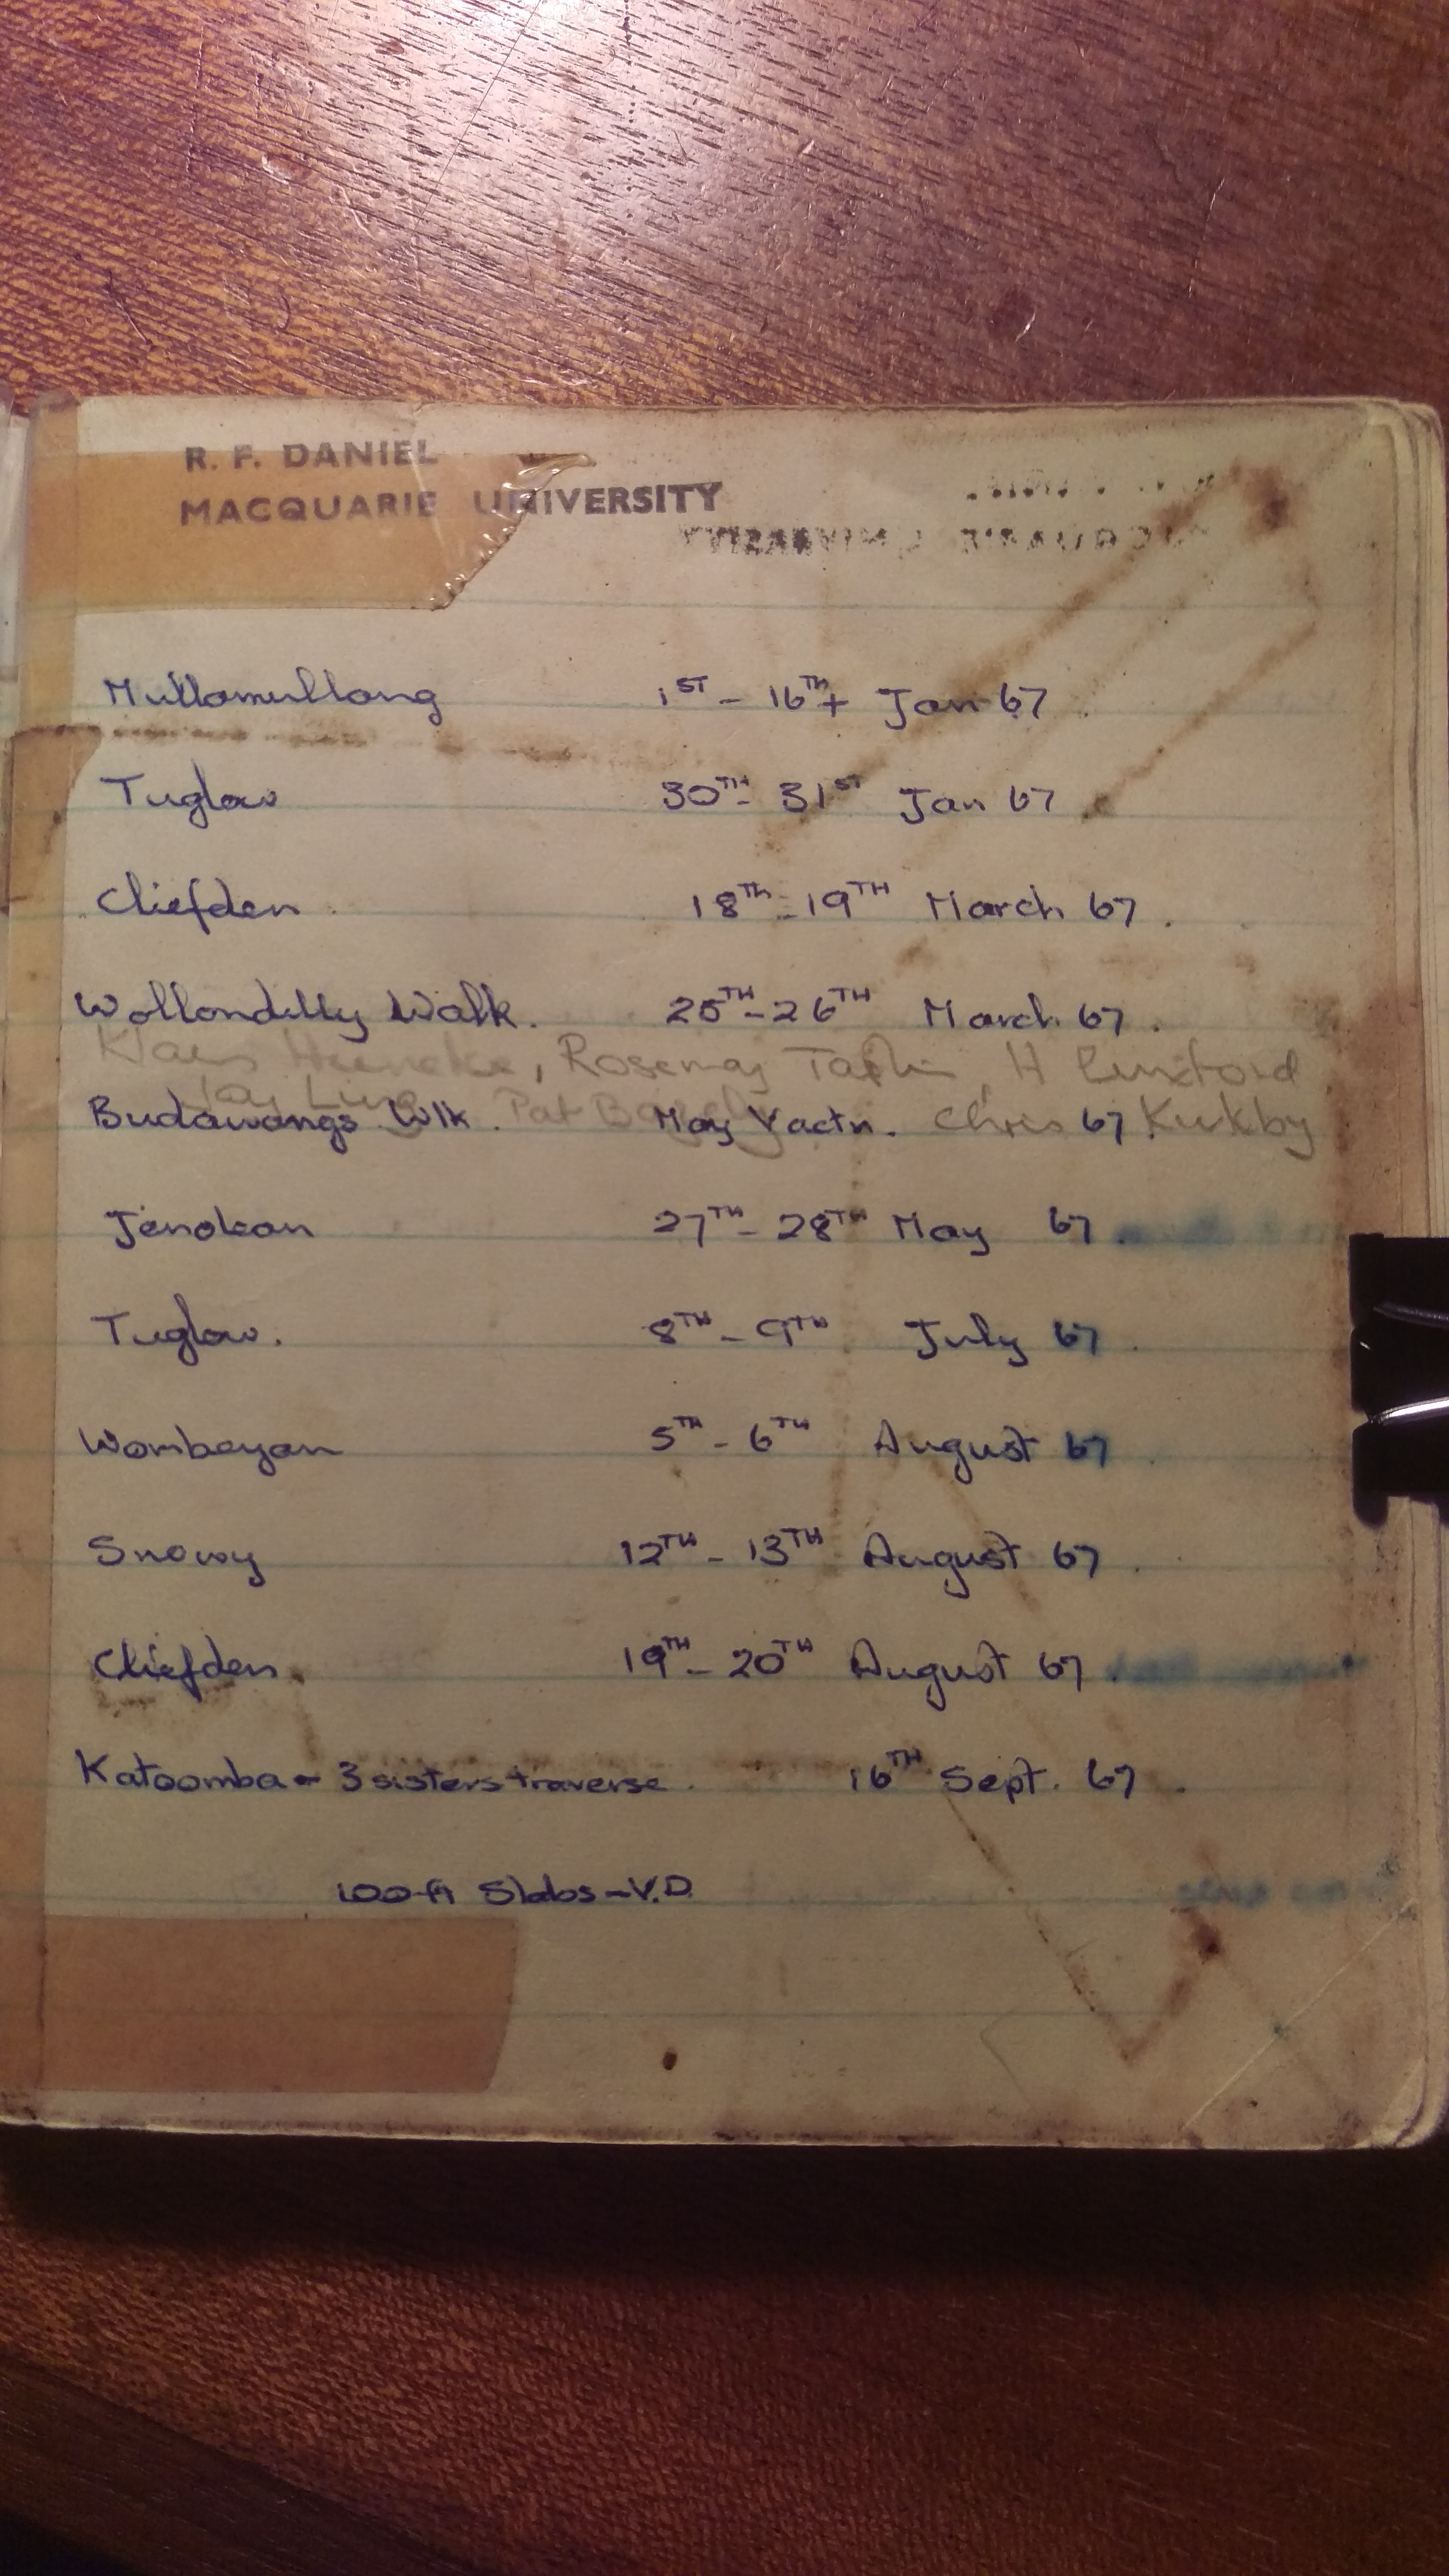 R. F. DANIEL
MACQUARIE UNIVERSITY
Mullamullang 1ST - 16TH+ Jan 67
Tuglow 30TH - 31ST Jan 67
Cliefden 18TH - 19TH March 67.
Wollondilly Walk. 25TH - 26TH March 67.
Klaus, Rosemary, H
Pat Chris Kirkby
Budawangs Wlk. May Vactn. 67.
Jenolean 27TH - 28TH May 67.
Tuglow. 8TH - 9TH July 67.
Wombeyan 5TH - 6TH August 67.
Snowy 12TH - 13TH August 67.
Cliefden 19TH - 20TH August 67.
Katoomba - 3 sisters traverse. 16TH Sept. 67.
100-ft Slabs - V.D.